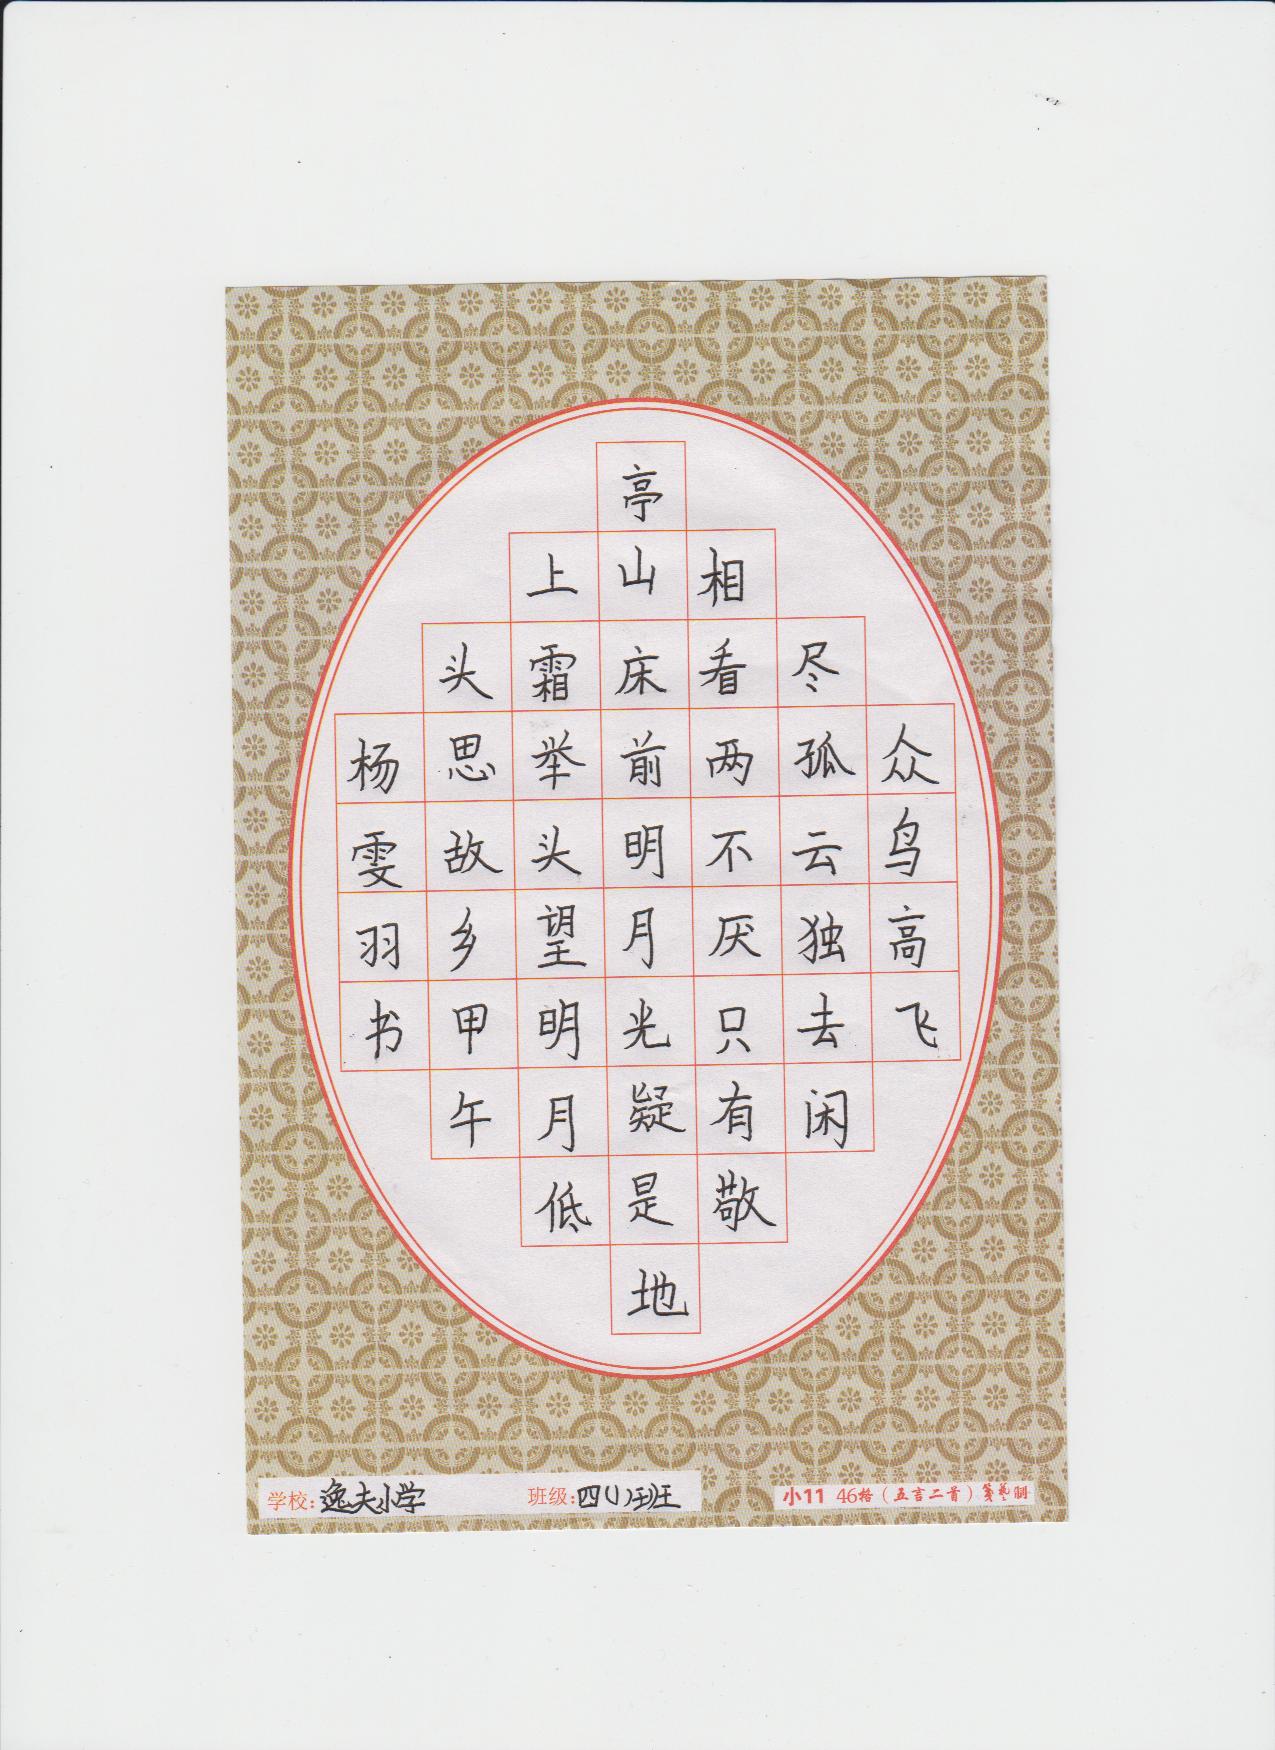 众鸟高飞
尽孤云独去闲
相看两不厌只有敬
亭山床前明月光疑是地
上霜举头望明月低
头思故乡甲午
杨雯羽书
学校：逸夫小学
班级：四(1)班
小11 46格（五言二首）